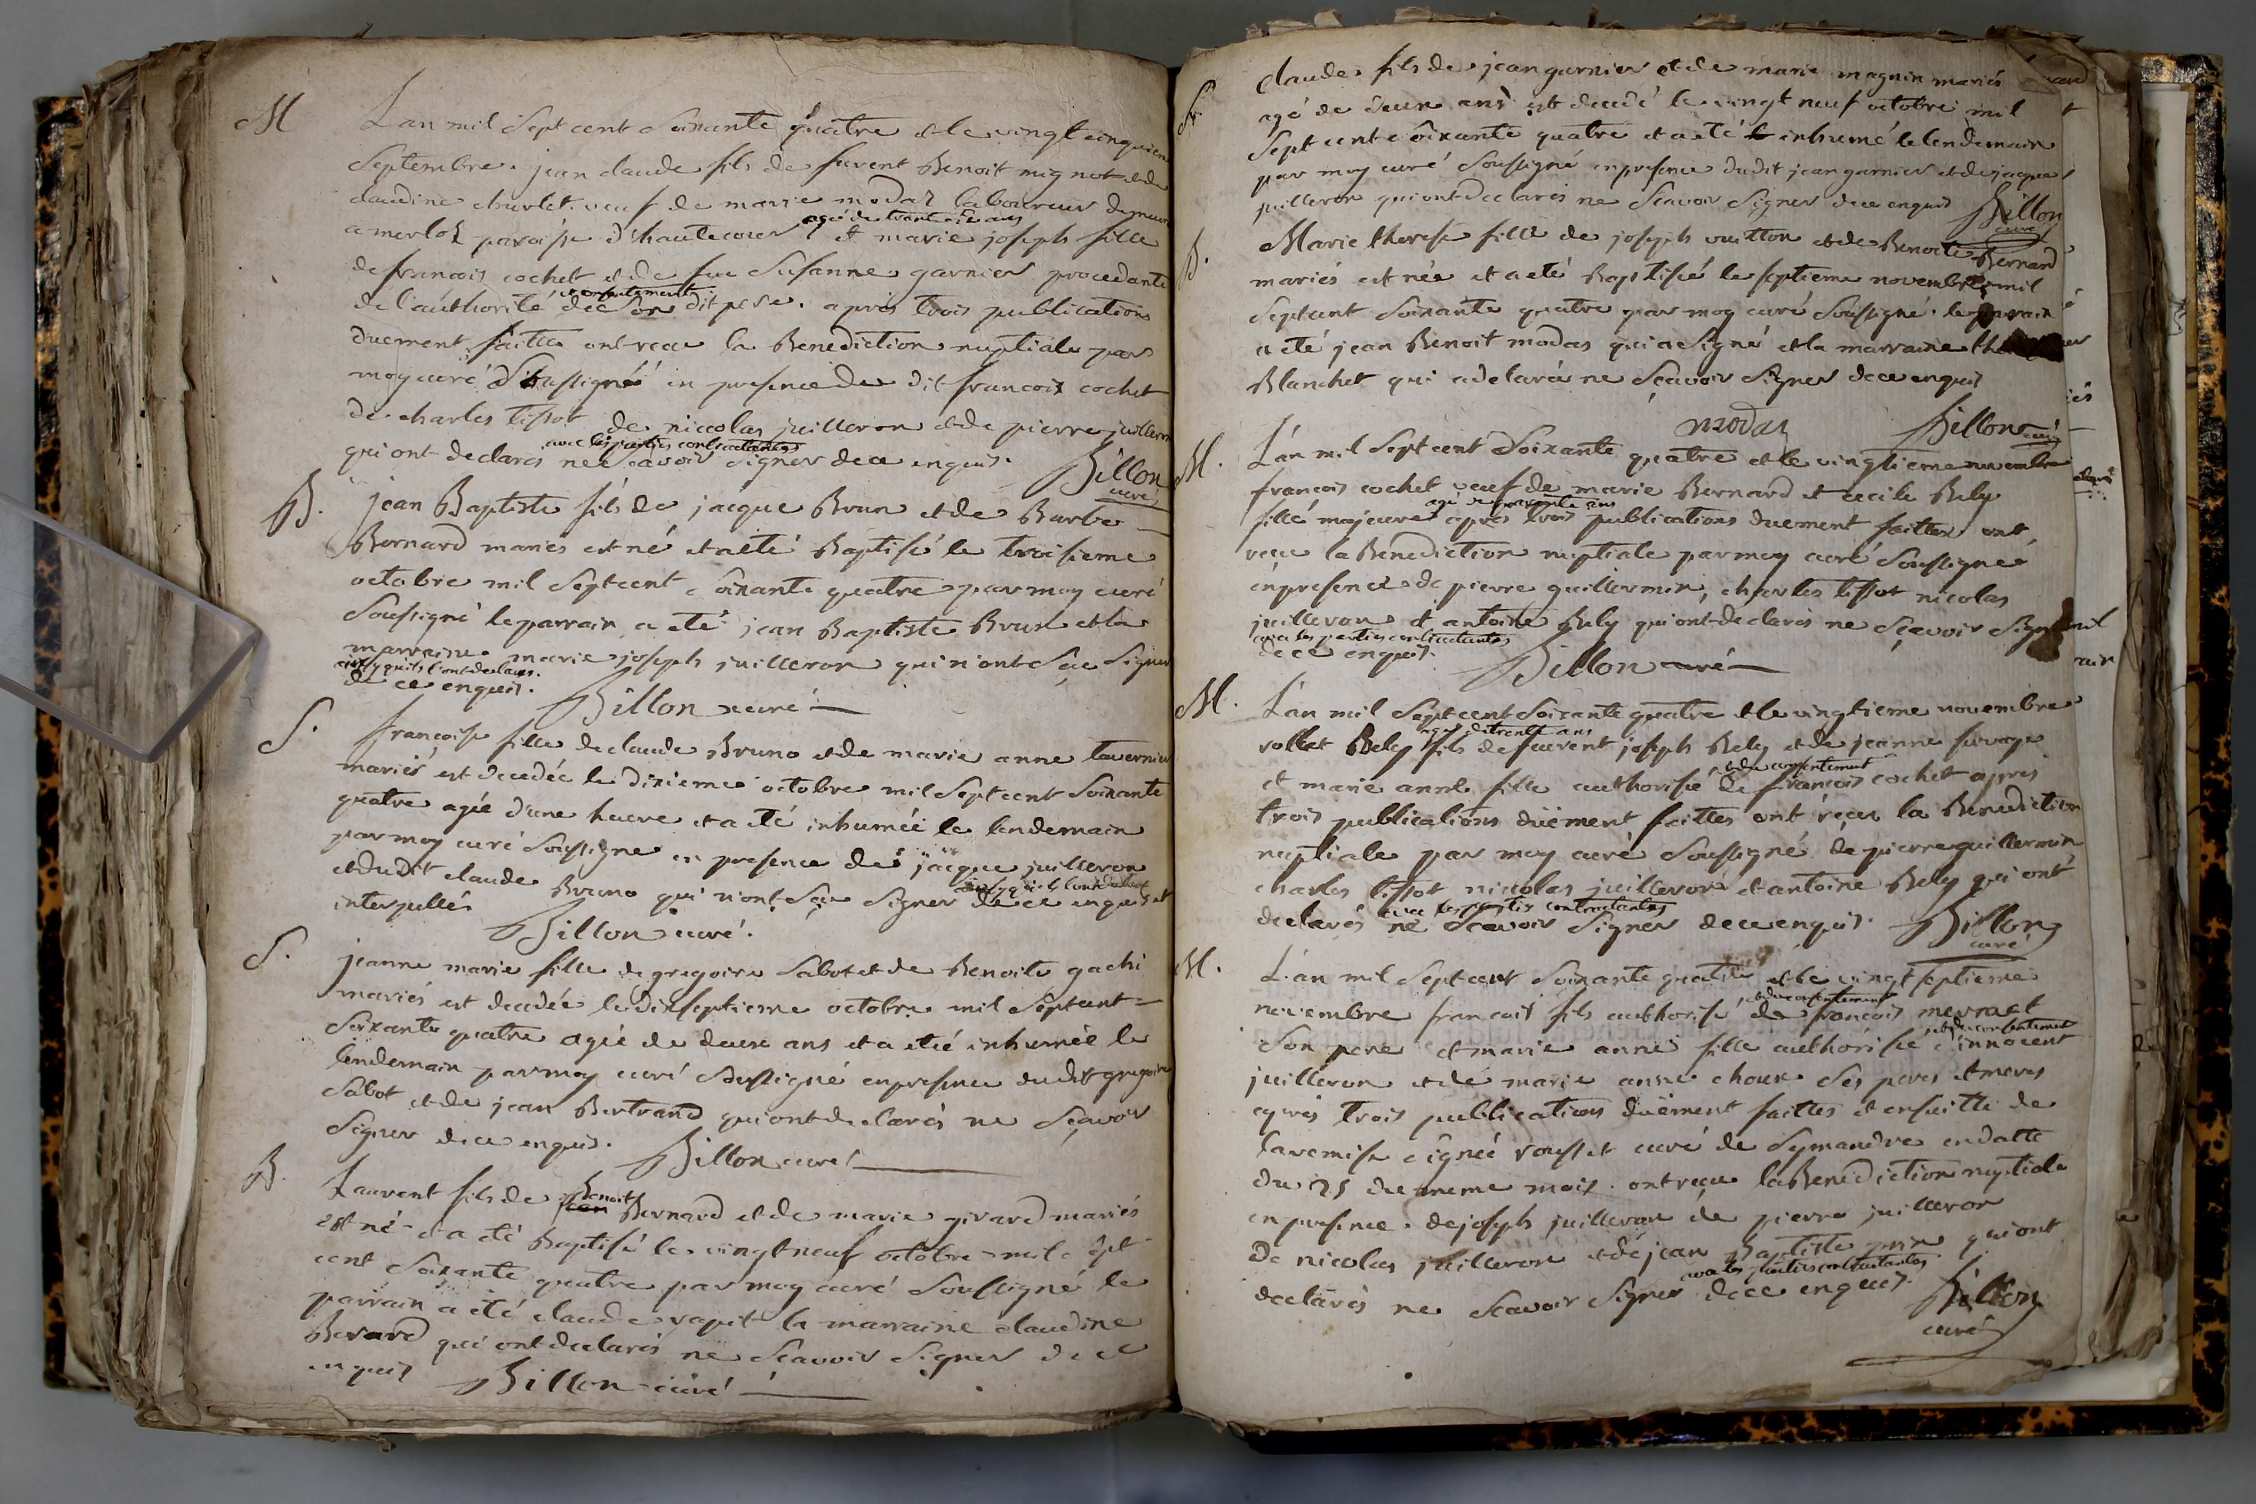 M
L'an mil Sept cent Soixante quatre et le vingt cinquieme
Septembre. jean claude fils de furent Benoit mignot et de
claudine churlet veuf de marie modas laboureur demeurant
agé de trante six ans
a merloz paroisse d'hautecour et marie joseph fille
de francois cochet et de fue Susanne garnier procedante
et consentement
de l'authorité de Son dit pere. apres trois publications
duement faittes ont recu la Benediction nuptiale par
moy curé Soussigné en presence du dit francois cochet
de charles tissot de nicolas juilleron et de pierre juilleron
avec les parties contractantes
qui ont declarés ne Scavoir Signer de ce enquis. Billon
curé
B.
jean Baptiste fils de jacque Brun et de Barbe
Bernard mariés est né et a eté Baptisé le troisieme
octobre mil Sept cent Soixante quatre par moy curé
Soussigné le parrain a eté jean Baptiste Brun et la
marraine marie joseph juilleron qui n'ont Sçu Signer
ainsy qu'ils l'ont declarés.
de ce enquis. Billon curé
S.
francoise fille de claude Bruno et de marie anne tavernier
mariés est decedée le dixieme octobre mil Sept cent Soixante
quatre agée d'une heure et a eté inhumée le lendemain
par moy curé Soussigné en presence de jacque juilleron
ainsy qu'ils l'ont declaré
et dudit claude Bruno qui n'ont Sçu Signer de ce enquis et
interpellés Billon curé.
S.
jeanne marie fille de gregoire Sabot et de Benoite gachi
mariés est decedée le dixseptieme octobre mil Sept cent
Soixante quatre agée de deux ans et a eté inhumée le
lendemain par moy curé Soussigné en presence dudit gregoire
Sabot et de jean Bertrand qui ont declarés ne Sçavoir
Signer de ce enquis. Billon curé
B.
Benoit
Laurent fils de jean Bernard et de marie girard mariés
est né et a eté Baptisé le vingt neuf octobre mil Sept
cent Soixante quatre par moy curé Soussigné le
parrain a eté claude vaput la marraine claudine
Berard qui ont declarés ne Scavoir Signer de ce
enquis Billon curé
S.
claude fils de jean garnier et de marie magnin mariés
agé de deux ans est decedé le vingt neuf octobre mil
Sept cent Soixante quatre et a eté inhumé le lendemain
par moy curé Soussigné en presence dudit jean garnier et de jacque
juilleron qui ont declarés ne Scavoir Signer de ce enquis Billon
curé
B.
Marie therese fille de joseph vuitton et de Benoite Bernard
mariés est née et a eté Baptisée le septieme novembre mil
Sept cent Soixante quatre par moy curé Soussigné. le parrain
a eté jean Benoit modas qui a Signé et la marraine
Blanchet qui a declarée ne Sçavoir Signer de ce enquis
modas Billon curé
M.
L'an mil Sept cent Soixante quatre et le vingtieme novembre
francois cochet veuf de marie Bernard et cecile Bely
fille majeure apres trois publications duement faittes ont
recu la Benediction nuptiale par moy curé Soussigné
en presence de pierre guillermin, charles tissot nicolas
juilleron et antoine Bely qui ont declarés ne Sçavoir Signer
avec les parties contractantes
de ce enquis. Billon curé
M.
L'an mil Sept cent Soixante quatre et le vingtieme novembre
agé de trente ans
rollet Bely fils de furent joseph Bely et de jeanne fuvage
et de consentement
et marie anne fille authorisé de francois cochet apres
trois publications duëment faittes ont reçu la Benediction
nuptiale par moy curé Soussigné de pierre guillermin
charles tissot nicolas juilleron et antoine Bely qui ont
avec les parties contractantes
declarés ne Scavoir Signer de ce enquis. Billon
curé
M.
L'an mil Sept cent Soixante quatre et le vingt septieme
et de consentement
novembre francois fils authorisé de francois
et de consentement
Son pere et marie anne fille authorisée d'innocent
juilleron et de marie anne choux Ses peres et meres
apres trois publications duëment faittes et ensuitte de
la remise Signée rousset curé de Symandre en datte
du 25 du meme mois. ont recu la Benediction nuptiale
en presence de joseph juilleron de pierre juilleron
de nicolas juilleron et de jean Baptiste qui ont
avec les parties contractantes
declarés ne Scavoir Signer de ce enquis. Billon
curé